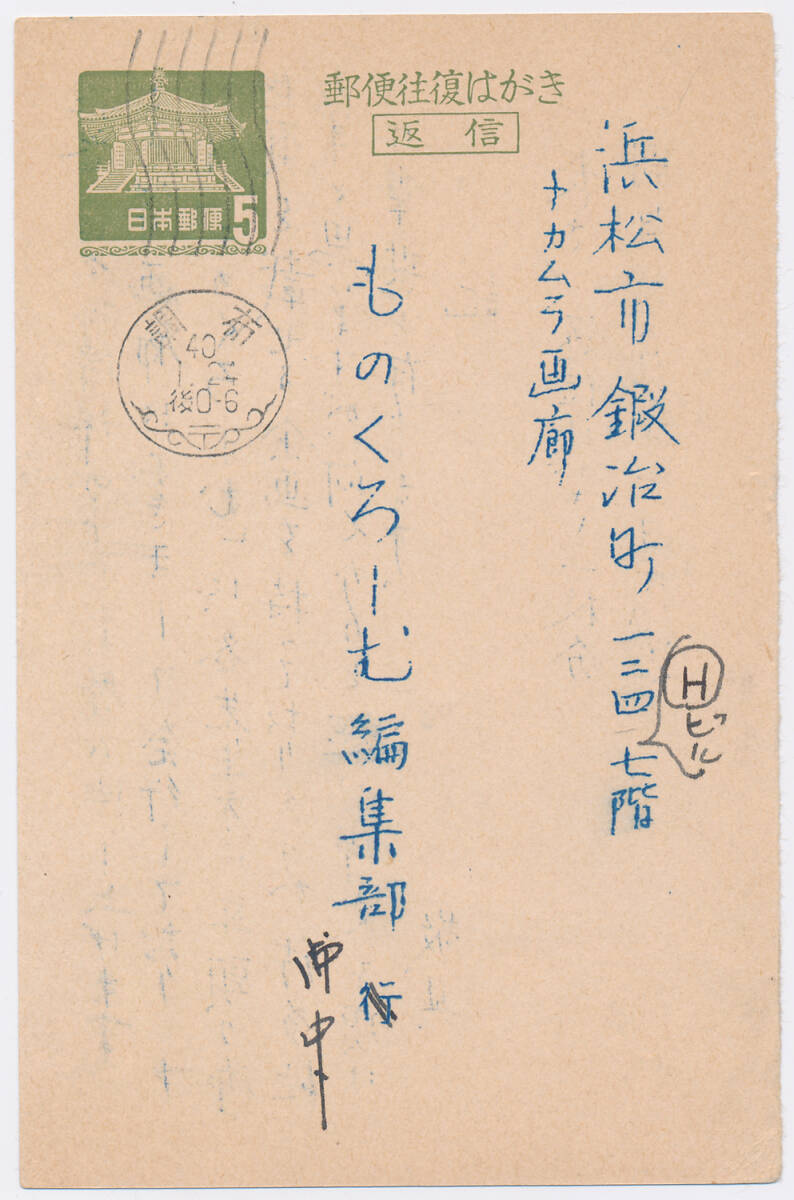 郵便往復はがき
返信
日本郵便 5
調布
40
1.24
後0-6
〒
浜松市鍛冶町一二四 七階
Hビル
ナカムラ画廊
ものくろーむ編集部 行
御中